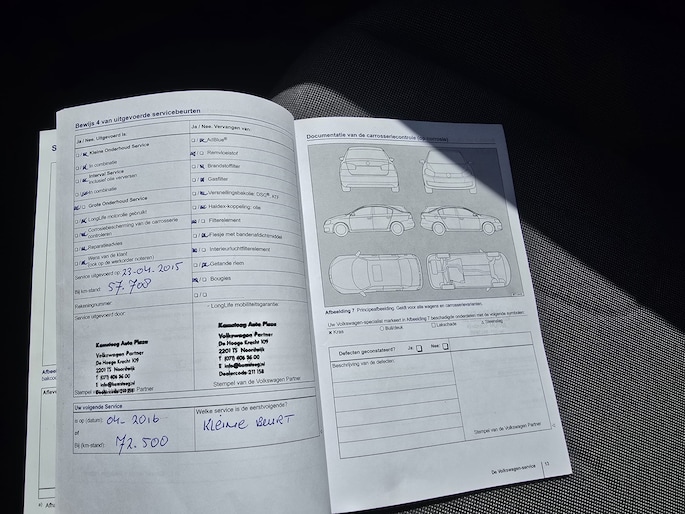 Bewijs 4 van uitgevoerde servicebeurten
Ja / Nee. Uitgevoerd is:
Kleine Onderhoud Service
In combinatie
Interval Service
Inclusief olie verversen
In combinatie
Grote Onderhoud Service
LongLife motorolie gebruikt
Corrosiebescherming van de carrosserie
controleren
Reparatieadvies
Wens van de klant
(ook op de werkorder noteren)
Service uitgevoerd op: 23-04-2015
Bij km-stand: 57.708
Rekeningnummer:
Service uitgevoerd door:
Kamsteeg Auto Plaza
Volkswagen Partner
De Hooge Krocht 109
2201 TS Noordwijk
T (071) 406 36 00
E info@kamsteeg.nl
Dealercode 211 158
Stempel van de Volkswagen Partner
Uw volgende Service
Is op (datum): 04-2016
of
Bij (km-stand): 72.500
Ja / Nee. Vervangen van:
AdBlue®
Remvloeistof
Brandstoffilter
Gasfilter
Versnellingsbakolie: DSG®, ATF
Haldex-koppeling: olie
Filterelement
Flesje met bandenafdichtmiddel
Interieurluchtfilterelement
Getande riem
Bougies
LongLife mobiliteitsgarantie:
Kamsteeg Auto Plaza
Volkswagen Partner
De Hooge Krocht 109
2201 TS Noordwijk
T (071) 406 36 00
E info@kamsteeg.nl
Dealercode 211 158
Stempel van de Volkswagen Partner
Welke service is de eerstvolgende?
Kleine Beurt
Documentatie van de carrosseriecontrole
Afbeelding 7 Principeafbeelding. Geldt voor alle wagens en carrosserievarianten.
Uw Volkswagen-specialist markeert in Afbeelding 7 beschadigde onderdelen met de volgende symbolen:
x Kras
Buts/deuk
Lakschade
Steenslag
Defecten geconstateerd? Ja: Nee:
Beschrijving van de defecten:
Stempel van de Volkswagen Partner
De Volkswagen-service 13